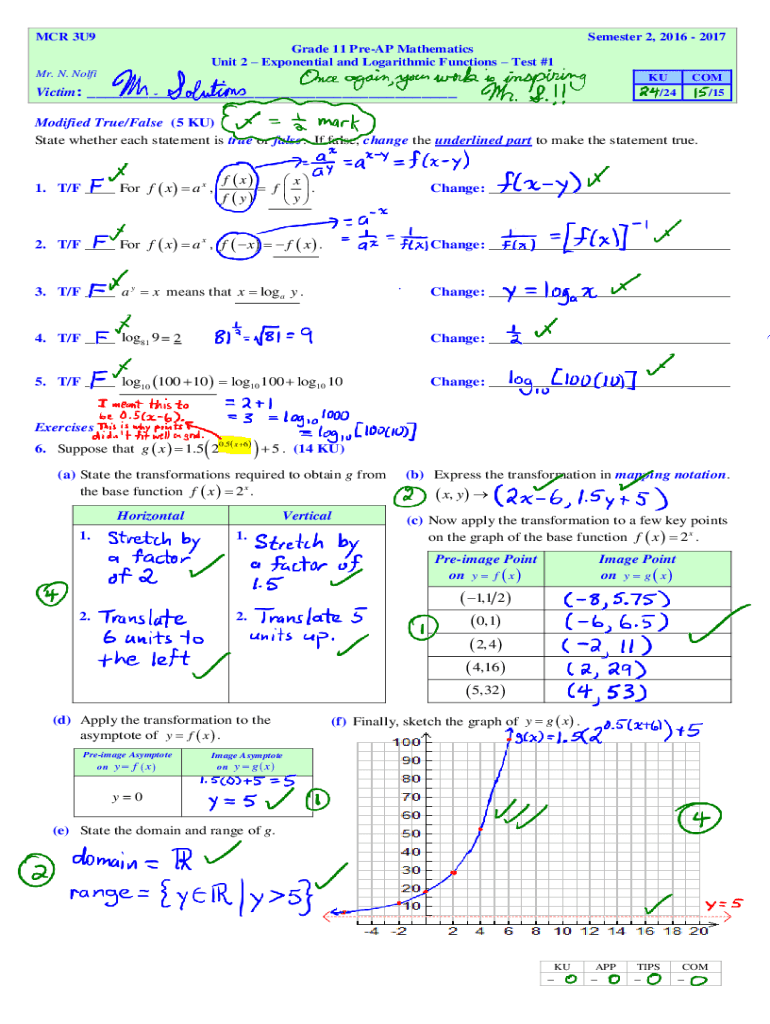 MCR 3U9 Semester 2, 2016 - 2017
Grade 11 Pre-AP Mathematics
Unit 2 – Exponential and Logarithmic Functions – Test #1
Mr. N. Nolfi
Victim: Mr. Solutions Once again, your work is inspiring Mr. S.!!
KU COM
24/24 15/15
Modified True/False (5 KU) ✓ = 1/2 mark
State whether each statement is true or false. If false, change the underlined part to make the statement true.
= a^x/a^y = a^(x-y) = f(x-y)
1. T/F F For f(x) = a^x, f(x)/f(y) = f(x/y). Change: f(x-y) ✓
= a^-x
= 1/a^x = 1/f(x)
2. T/F F For f(x) = a^x, f(-x) = -f(x). Change: 1/f(x) = [f(x)]^-1 ✓
3. T/F F a^y = x means that x = log_a y. Change: y = log_a x ✓
4. T/F F log_81 9 = 2 81^(1/2) = √81 = 9 Change: 1/2 ✓
5. T/F F log_10 (100+10) = log_10 100 + log_10 10 Change: log_10 [100(10)] ✓
= 2+1
= 3 = log_10 1000
= log_10 [100(10)]
I meant this to
be 0.5(x-6).
This is why points
didn't fit well on grid.
Exercises
6. Suppose that g(x) = 1.5(2^(0.5(x+6))) + 5. (14 KU)
(a) State the transformations required to obtain g from
the base function f(x) = 2^x.
Horizontal Vertical
1. Stretch by a factor of 2 ✓
1. Stretch by a factor of 1.5 ✓
4
2. Translate 6 units to the left ✓
2. Translate 5 units up. ✓
(b) Express the transformation in mapping notation.
2 (x, y) → (2x-6, 1.5y+5)
(c) Now apply the transformation to a few key points
on the graph of the base function f(x) = 2^x.
Pre-image Point on y = f(x) Image Point on y = g(x)
(-1,1/2) (-8, 5.75)
(0,1) (-6, 6.5)
1 (2,4) (-2, 11) ✓
(4,16) (2, 29)
(5,32) (4, 53)
(d) Apply the transformation to the
asymptote of y = f(x).
Pre-image Asymptote on y = f(x) Image Asymptote on y = g(x)
1.5(0)+5 = 5
y = 0 y = 5 ✓ 1
(e) State the domain and range of g.
2 domain = ℝ ✓
range = {y∈ℝ | y>5} ✓
(f) Finally, sketch the graph of y = g(x).
g(x) = 1.5(2^(0.5(x+6))) + 5
100
90
80
70
60
50
40
30
20
10
4
y = 5
-4 -2 2 4 6 8 10 12 14 16 18 20
KU APP TIPS COM
– 0 – 0 – 0 – 0